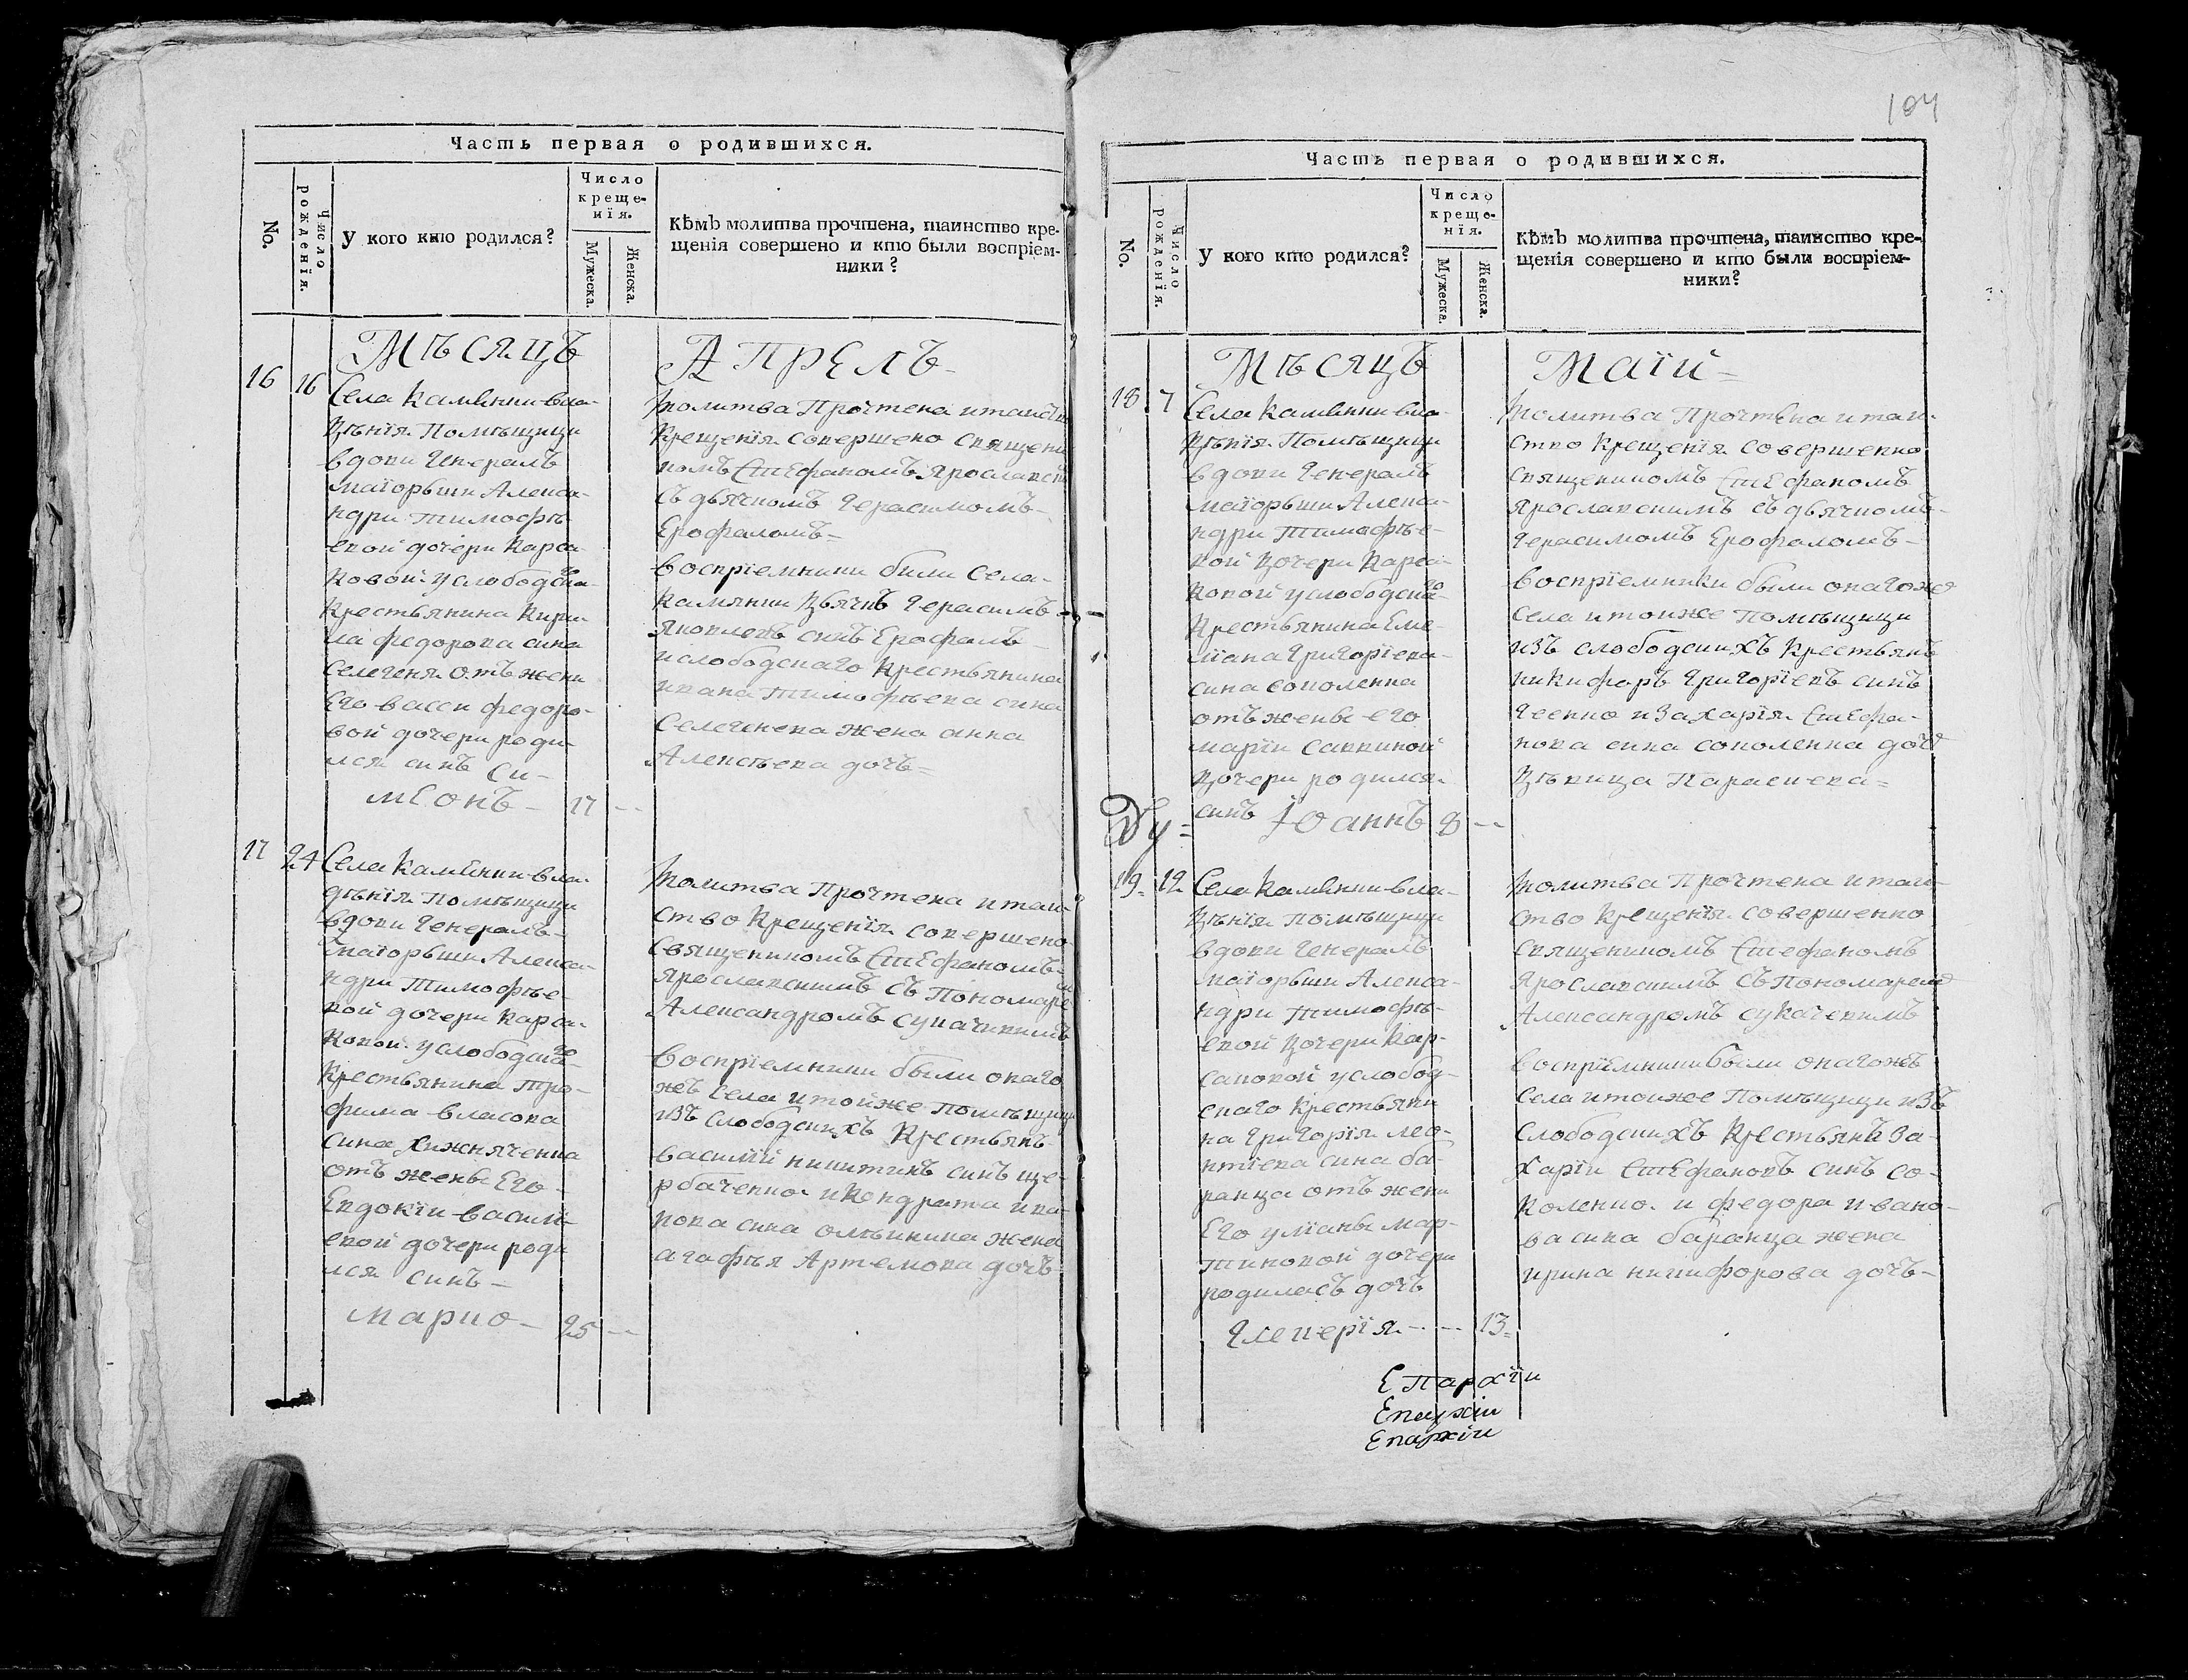 104
Часть первая о родившихся.
No.
Число рожденія.
У кого кто родился?
Число креще-
нія.
Мужеска.
Женска.
Кѣмъ молитва прочтена, таинство кре-
щенія совершено и кто были воспріем-
ники?
Мѣсяцъ
Апрель
16
16
Села Каменки вла-
дѣнія Помѣщици
вдови Генералъ
маіорьши Алекса-
ндри Тимофѣ-
евой дочери Карса-
ковой услободскаго
Крестьянина Кири-
ла федорова сина
Селегеня отъ жени
Его васси федоро-
вой дочери роди-
лся синъ Си-
меонъ 17
Молитва Прочтена итаинст
Крещенія совершено Священи
комъ Стефаномъ Ярославски
съ дьячкомъ Герасимомъ
Ерофаломъ
воспріемники били Села
камянки Дьячкъ Герасимъ
Яковлевъ синъ Ерофалъ
ислободскаго Крестьянина
ивана Тимофѣева сина
Селегенева жена анна
Алексѣева дочъ
17
24
Села Каменки вла-
дѣнія Помѣщици
вдови Генералъ
маіорьши Алекса-
ндри Тимофѣе-
вой дочери Карса-
ковой услободскаго
Крестьянина Тро-
фима власова
сина Хижняченка
отъ жены Его
Евдокіи василі-
евой дочери роди
лся синъ
марко 25
Молитва Прочтена итаин-
ство Крещенія совершено
Священикомъ Стефаномъ
Ярославскимъ съ Пономаре
Александромъ сукачевимъ
воспріемники были онаго
жъ Села итойже Помѣщици
изъ Слободскихъ Крестьянъ
василій никитинъ синъ ще-
рбаченко и Кондрата ива-
нова сина жена
агафѣя Артемова дочъ
Часть первая о родившихся.
No.
Число рожденія.
У кого кто родился?
Число креще-
нія.
Мужеска.
Женска.
Кѣмъ молитва прочтена, таинство кре-
щенія совершено и кто были воспріем-
ники?
Мѣсяцъ
Маій
18
7
Села Каменки вла-
дѣнія Помѣщици
вдови Генералъ
маіорьши Алекса-
ндри Тимофѣе-
вой дочери Карса-
ковой услободскаго
Крестьянина Еме-
ліана Григоріева
сина соколенка
отъ жены его
маріи саввиной
дочери родился
синъ Іоаннъ 8
Молитва Прочтена итаи-
ство Крещенія совершенно
священикомъ Стефаномъ
Ярославскимъ съ дьячкомъ
Герасимомъ Ерофаломъ
воспріемники были онагоже
села итоиже Помѣщици
изъ слободскихъ крестьянъ
никифоръ Григоріевъ синъ
изахарія Стефа-
нова сина соколенка доче
Дѣвица Параскева
19
12
Села Каменки вла-
дѣнія помѣщици
вдови Генералъ
маіорьши Алекса-
ндри тимофѣ-
евой дочери Кар-
саковой услобод-
скаго Крестьяни
на Григорія лео-
нтіева сина ба-
ранца отъ жени
Его уліаны мар-
тиновой дочери
родилась дочъ
Гликерія 13
Молитва Прочтена итаи-
ство крещенія совершенно
священикомъ Стефаномъ
Ярославскимъ съ Пономаремъ
Александромъ сукачевимъ
воспріемники были онагожъ
Села итоиже Помѣщици изъ
Слободскихъ Крестьянъ За-
харіи Стефановъ синъ со-
коленко и федора ивано-
ва сина баранца жена
ирина никифорова дочъ
Епархіи
Епархіи
Епархіи